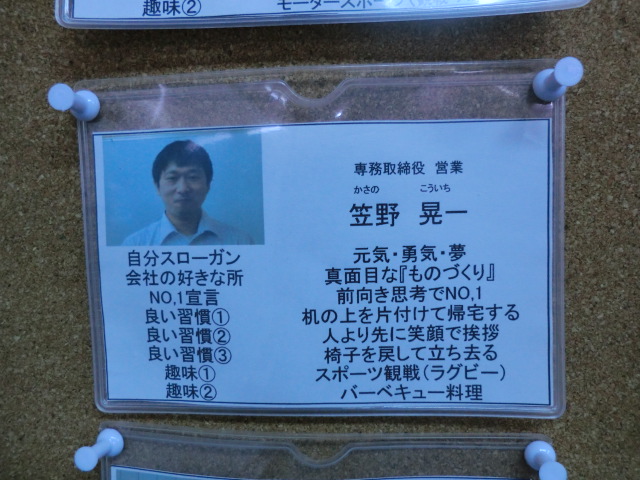 趣味②
専務取締役 営業
かさの こういち
笠野 晃一
自分スローガン 元気・勇気・夢
会社の好きな所 真面目な『ものづくり』
NO,1宣言 前向き思考でNO,1
良い習慣① 机の上を片付けて帰宅する
良い習慣② 人より先に笑顔で挨拶
良い習慣③ 椅子を戻して立ち去る
趣味① スポーツ観戦(ラグビー)
趣味② バーベキュー料理